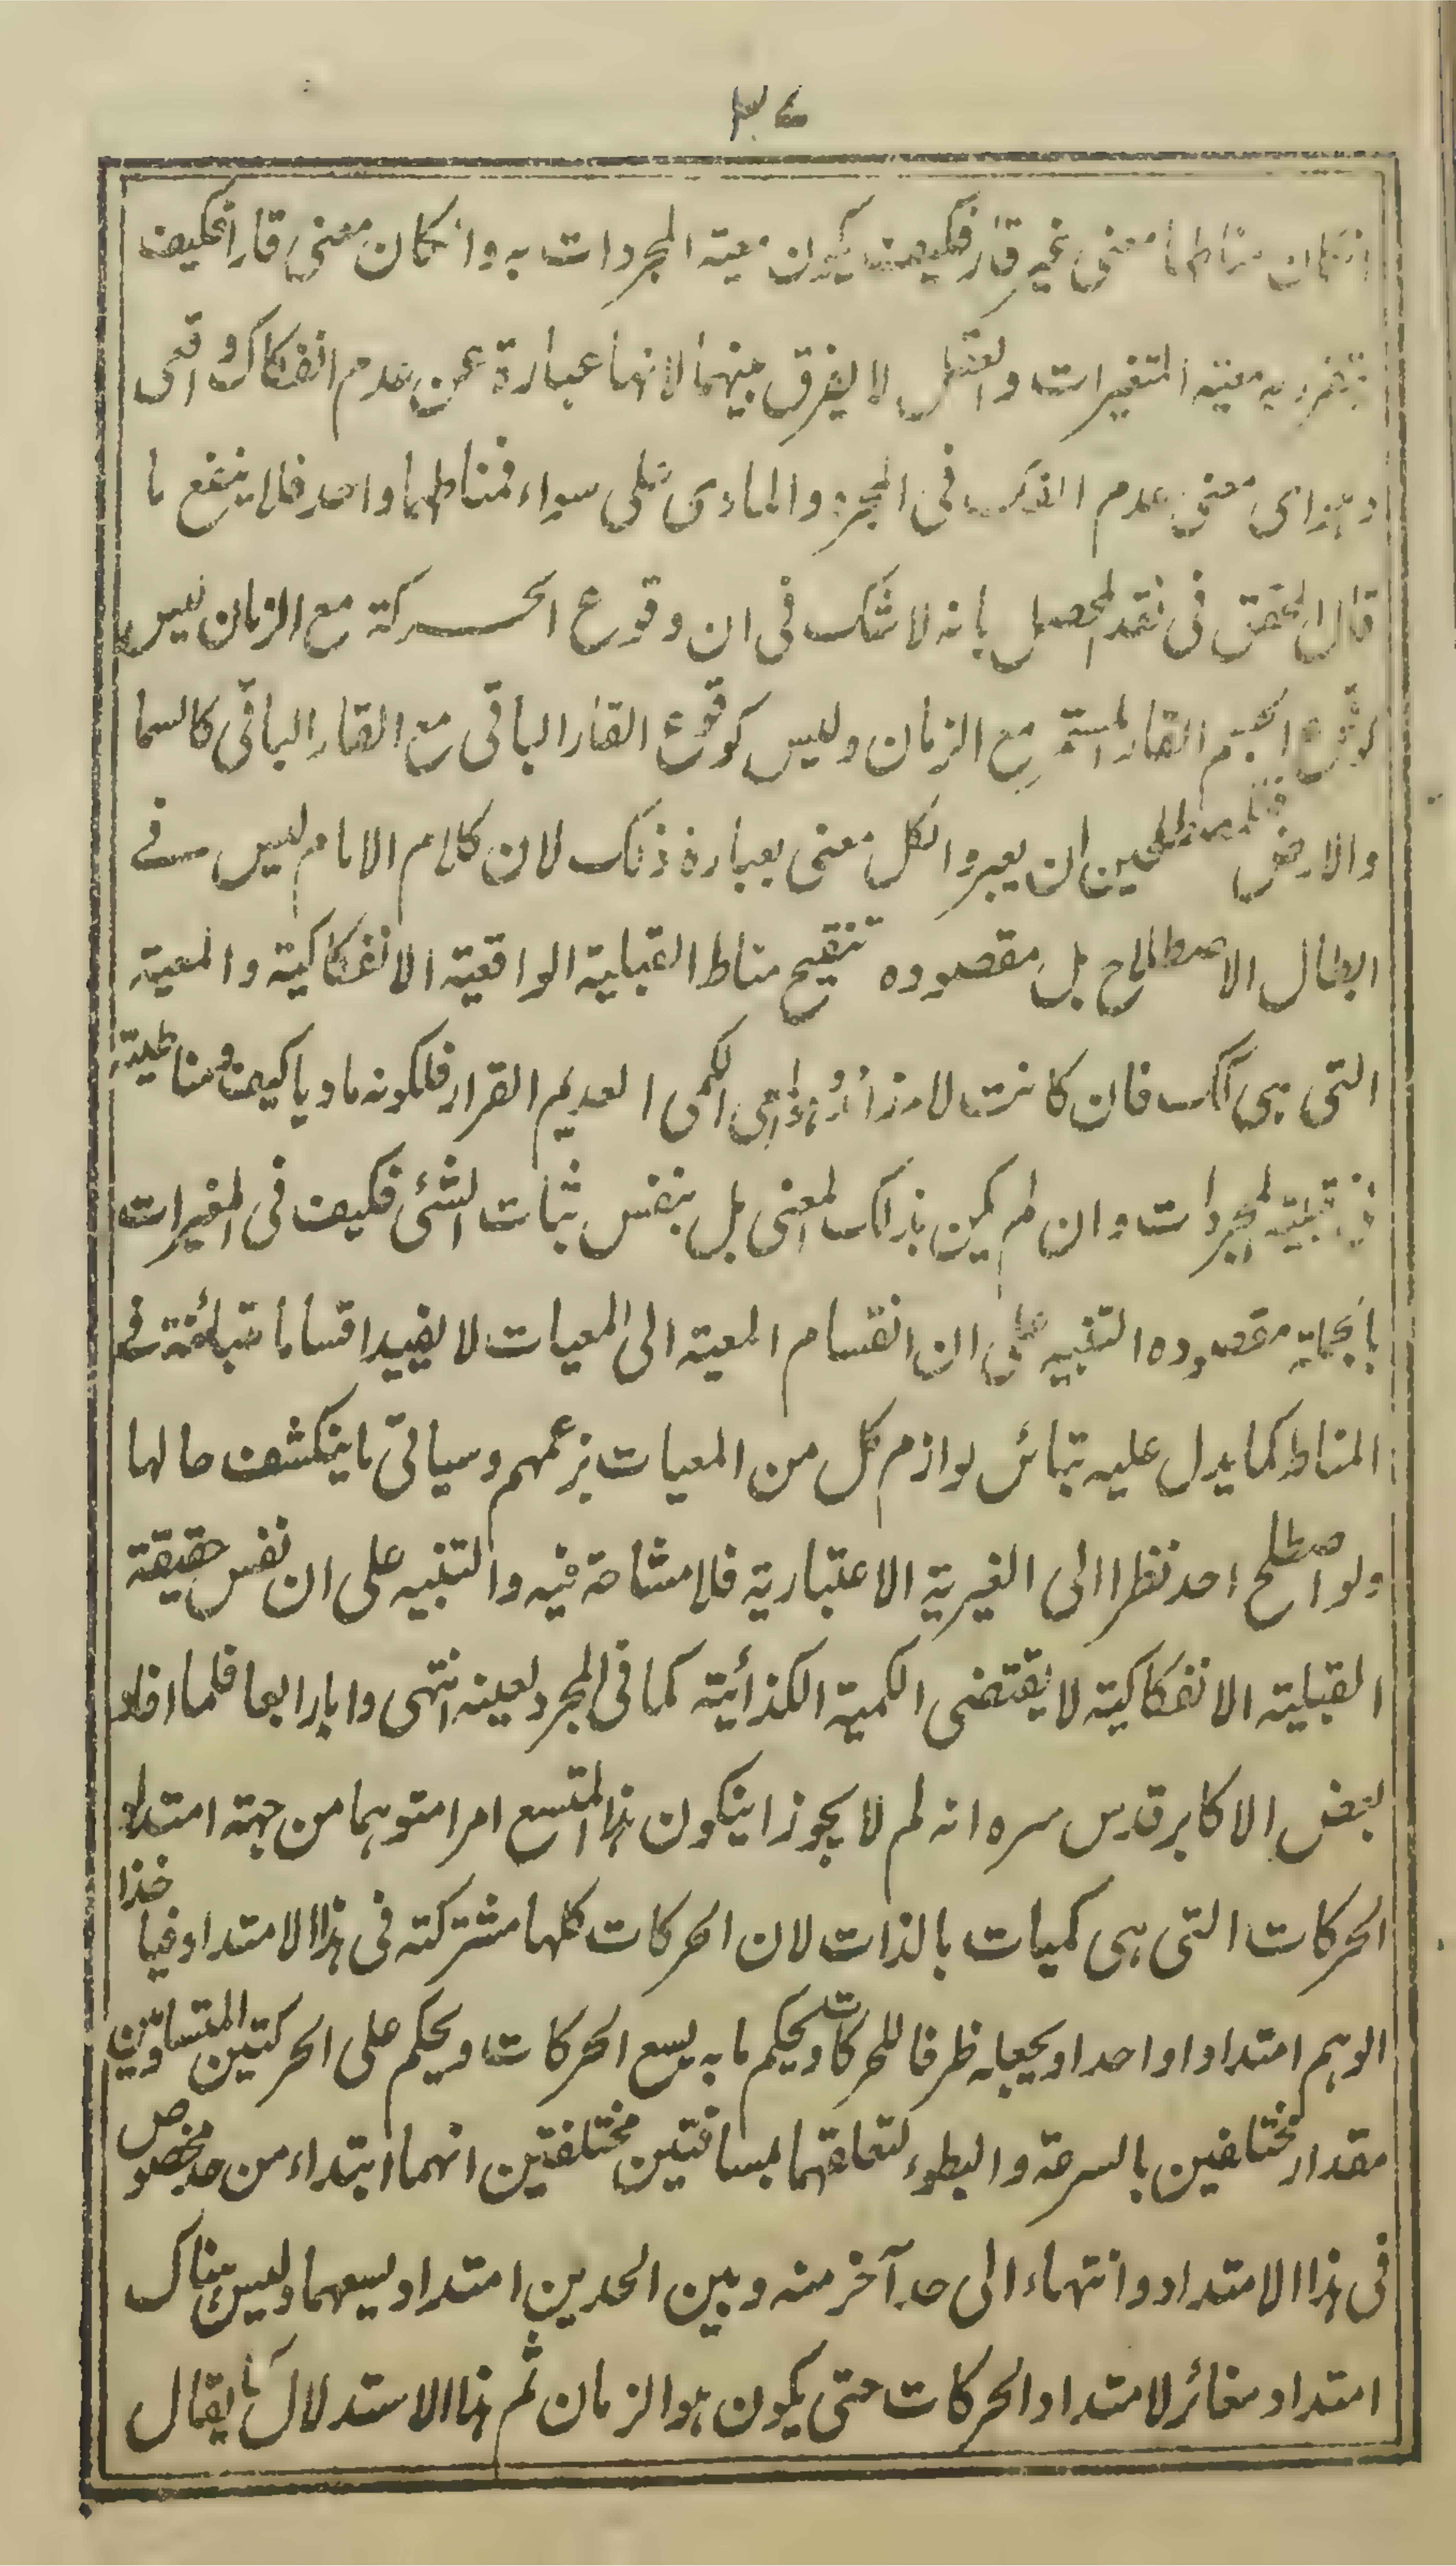 ٣٤
انكان مناطها معنى غير قار فكيف يكون معية المجردات به وانكان معنى قارا فكيف
يتقرر به معية المتغيرات والعقل لا يفرق بينهما لانهما عبارة عن عدم انفكاك واقعى
وهذا اى معنى عدم انفكاك فى المجرد والمادى على سواء فمناطهما واحد فلا ينفع ما
قال المحقق فى نقد المحصل بانه لا شك فى ان وقوع الحركة مع الزمان ليس
كوقوع الجسم القار المستمر مع الزمان وليس كوقوع القار الباقى مع القار الباقى كالسما
والارض فللمصطلحين ان يعبروا لكل معنى بعبارة ذلك لان كلام الامام ليس فى
ابطال الاصطلاح بل مقصوده تنقيح مناط القبلية الواقعية الانفكاكية والمعية
التى هى كك فان كانت لامر الكمى العديم القرار فلكونه ماديا كيف مناطيته
فى قبلية المجردات وان لم يكن بذلك المعنى بل بنفس ثبات الشئ فكيف فى المتغيرات
بالجملة مقصوده التنبيه على ان انقسام المعية الى المعيات لا يفيد اقساما متبائنة فى
المناط كما يدل عليه تبائن لوازم كل من المعيات بزعمهم وسياتى ما ينكشف حالها
ولو اصطلح احد نظرا الى الغيرية الاعتبارية فلا مشاحة فيه والتنبيه على ان نفس حقيقة
القبلية الانفكاكية لا يقتضى الكمية الكذائية كما فى المجرد بعينه انتهى واما رابعا فلما افاد
بعض الاكابر قدس سره انه لم لا يجوز اينكون هذا المتسع امرا متوهما من جهة امتداد
الحركات التى هى كميات بالذات لان الحركات كلها مشتركة فى هذا الامتداد فياخذ
الوهم امتدادا واحدا ويجعله ظرفا للحركات ويحكم ما به يسع الحركات ويحكم على الحركتين المتساويتين
مقدار مختلفين بالسرعة والبطوء لتعلقهما بمسافتين مختلفتين انهما ابتداء من حد مخصوص
فى هذا الامتداد وانتهاء الى حد آخر منه وبين الحدين امتداد يسعهما وليس هناك
امتداد مغائر لامتداد الحركات حتى يكون هو الزمان ثم هذا الاستدلال كما يقال